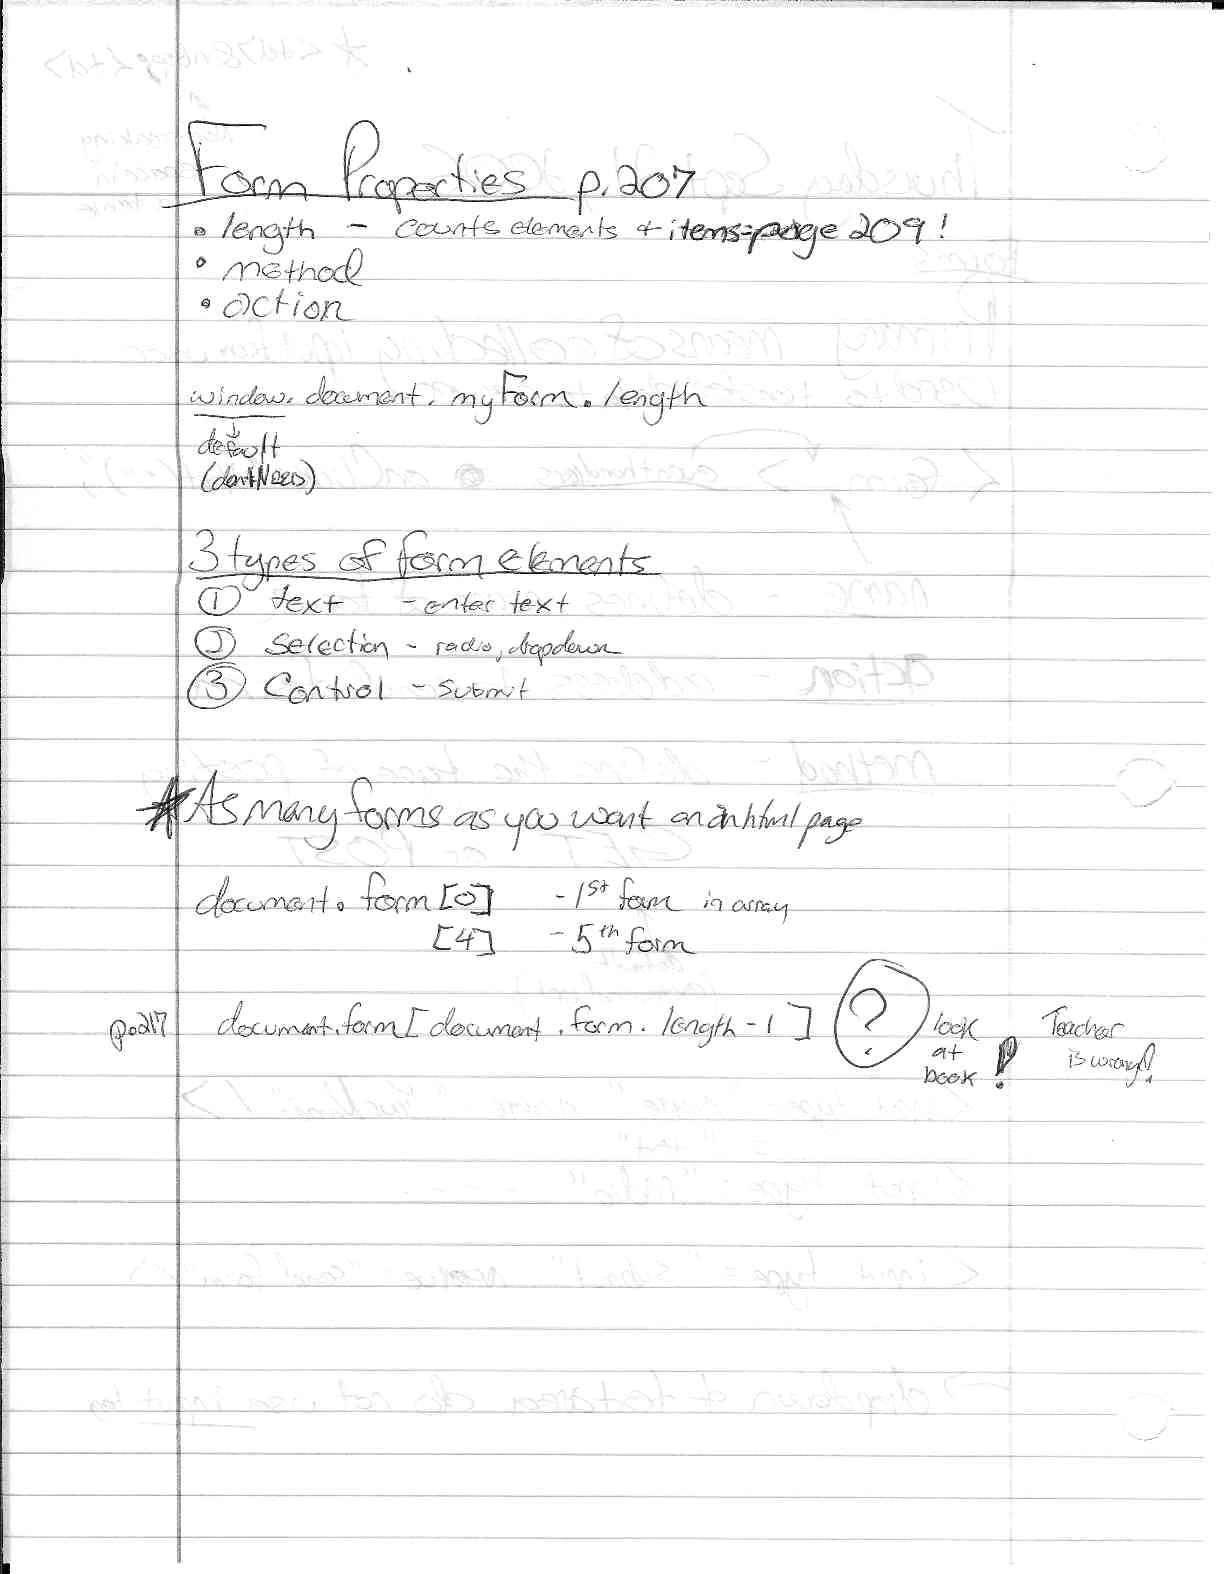 Form Properties p.207
• length - counts elements + items=page 209!
• method
• action
window. document. myForm. length
default
(don't Need)
3 types of form elements
① text - enter text
② Selection - radio, dropdown
③ Control - submit
* As many forms as you want on an html page
document. form [0] - 1st form in array
[4] - 5th form
p.217 document.form [document.form. length - 1] ? look at book! Teacher is wrong!